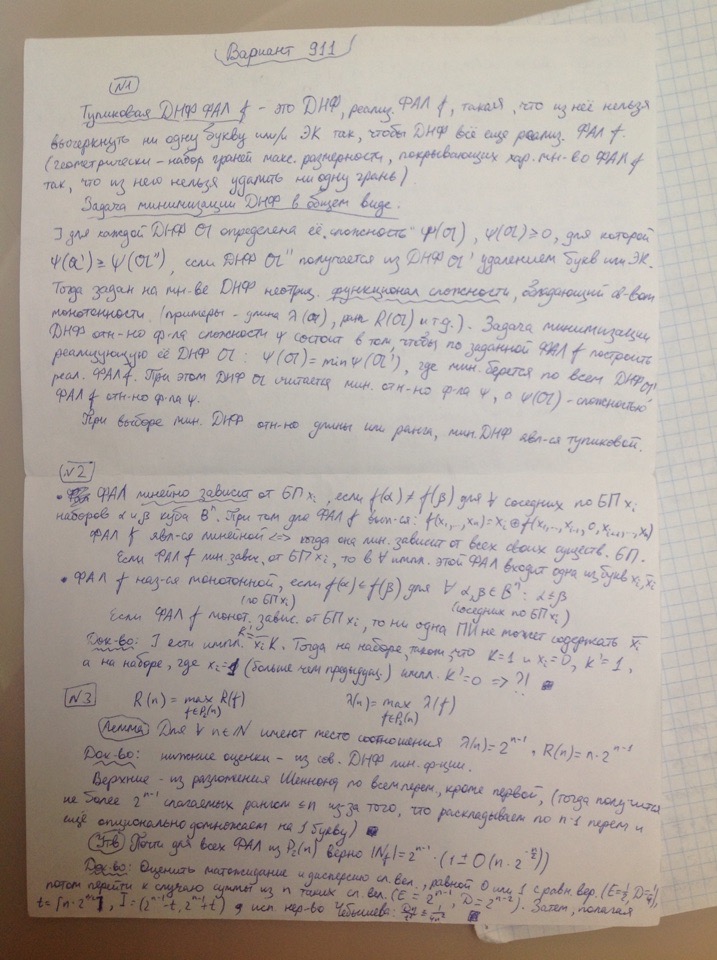 Вариант 911
№1
Тупиковая ДНФ ФАЛ f - это ДНФ, реализ. ФАЛ f, такая, что из неё нельзя
вычеркнуть ни одну букву или/и ЭК так, чтобы ДНФ всё ещё реализ. ФАЛ f.
(геометрически - набор граней макс. размерности, покрывающих хар. мн-во ФАЛ f
так, что из него нельзя удалить ни одну грань)
Задача минимизации ДНФ в общем виде.
] для каждой ДНФ 𝔄 определена её "сложность" ψ(𝔄), ψ(𝔄) ≥ 0, для которой
ψ(𝔄') ≥ ψ(𝔄''), если ДНФ 𝔄'' получается из ДНФ 𝔄' удалением букв или ЭК.
Тогда задан на мн-ве ДНФ неотриц. функционал сложности, обладающий св-вом
монотонности. (примеры - длина λ(𝔄), ранг R(𝔄) и т.д.). Задача минимизации
ДНФ отн-но ф-ла сложности ψ состоит в том, чтобы по заданной ФАЛ f построить
реализующую её ДНФ 𝔄: ψ(𝔄) = min ψ(𝔄'), где мин. берется по всем ДНФ 𝔄'
реал. ФАЛ f. При этом ДНФ 𝔄 считается мин. отн-но ф-ла ψ, а ψ(𝔄) - сложностью
ФАЛ f отн-но ф-ла ψ.
При выборе мин. ДНФ отн-но длины или ранга, мин. ДНФ явл-ся тупиковой.
№2
• ФАЛ линейно зависит от БП xᵢ, если f(α) ≠ f(β) для ∀ соседних по БП xᵢ
наборов α и β куба Bⁿ. При том для ФАЛ f вып-ся: f(x₁,...,xₙ) = xᵢ ⊕ f(x₁,...,xᵢ₋₁, 0, xᵢ₊₁,...,xₙ)
ФАЛ f явл-ся линейной <=> когда она лин. зависит от всех своих существ. БП.
Если ФАЛ f лин. завис. от БП xᵢ, то в ∀ импл. этой ФАЛ входит одна из букв xᵢ, x̄ᵢ
• ФАЛ f наз-ся монотонной, если f(α) ≤ f(β) для ∀ α, β ∈ Bⁿ: α ≤ β
(по БП xᵢ) (соседних по БП xᵢ)
Если ФАЛ f монот. завис. от БП xᵢ, то ни одна ПИ не может содержать x̄ᵢ
Док-во: ] есть импл. K' = x̄ᵢK. Тогда на наборе, таком, что K=1 и xᵢ=0, K'=1,
а на наборе, где xᵢ=1 (больше чем предыдущ.) импл. K'=0 => ?!
№3 R(n) = max R(f) λ(n) = max λ(f)
f∈P₂(n) f∈P₂(n)
Лемма Для ∀ n∈N имеют место соотношения λ(n) = 2ⁿ⁻¹, R(n) = n·2ⁿ⁻¹
Док-во: нижние оценки - из сов. ДНФ лин. ф-ции.
Верхние - из разложения Шеннона по всем перем., кроме первой, (тогда получится
не более 2ⁿ⁻¹ слагаемых рангом ≤ n из-за того, что раскладываем по n-1 перем и
ещё опционально домножаем на 1 букву)
Утв Почти для всех ФАЛ из P₂(n) верно |N_f| = 2ⁿ⁻¹·(1 ± O(n·2^(-n/2)))
Док-во: Оценить матожидание и дисперсию сл. вел., равной 0 или 1 с равн. вер. (E=1/2, D=1/4),
потом перейти к случаю суммы из n таких сл. вел. (E = 2ⁿ⁻¹, D = 2ⁿ⁻²). Затем, полагая